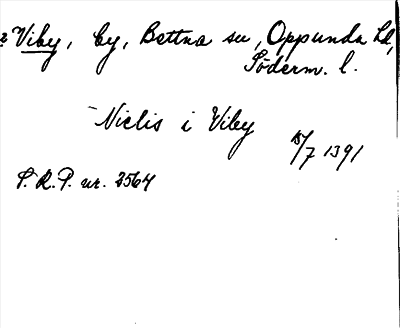 2 Viby, by, Bettna sn, Oppunda hd,
Söderm. l.
Niclis i Viby
15/7 1391
S. R. P. nr. 2564